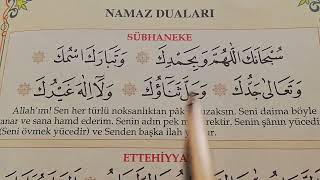 NAMAZ DUALARI
SÜBHANEKE
سُبْحَانَكَ اللّٰهُمَّ وَبِحَمْدِكَ وَتَبَارَكَ اسْمُكَ
وَتَعَالٰى جَدُّكَ وَجَلَّ ثَنَاؤُكَ وَلَا اِلٰهَ غَيْرُكَ
Allah'ım! Sen her türlü noksanlıktan pâk uzaksın. Seni daima böyle
anar ve sana hamd ederim. Senin adın pek mü rektir. Senin şânın yücedir
(Seni övmek yücedir) ve Senden başka ilah yoktur.
ETTEHİYYA